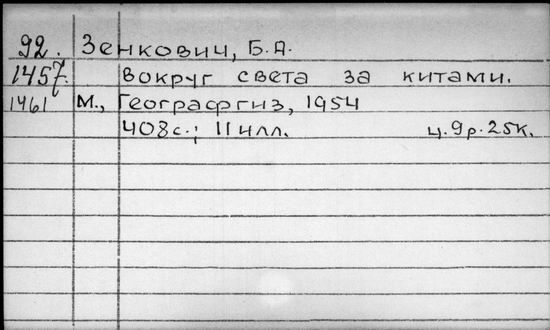 92. Зенкович, Б.А.
1457 Вокруг света за китами.
1461 М., Географгиз, 1954
408с.; 11илл. ц.9р.25к.